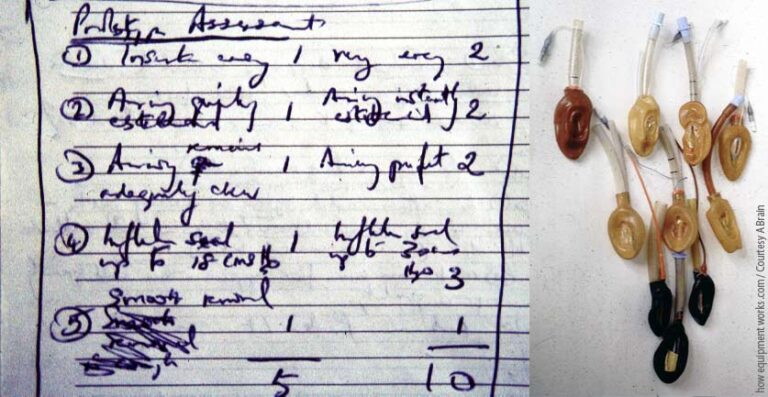 Prototype Assessment
① Insert easy 1 very easy 2
② Airway quickly 1 Airway instantly 2
established established
③ Airway remains 1 Airway perfect 2
adequately clear
④ Inflation seal 1 Inflation seal
up to 15 cms H₂O up to 30cms
H₂O 3
Smooth removal
⑤ 1 1
5 10
how equipment works.com / Courtesy A Brain